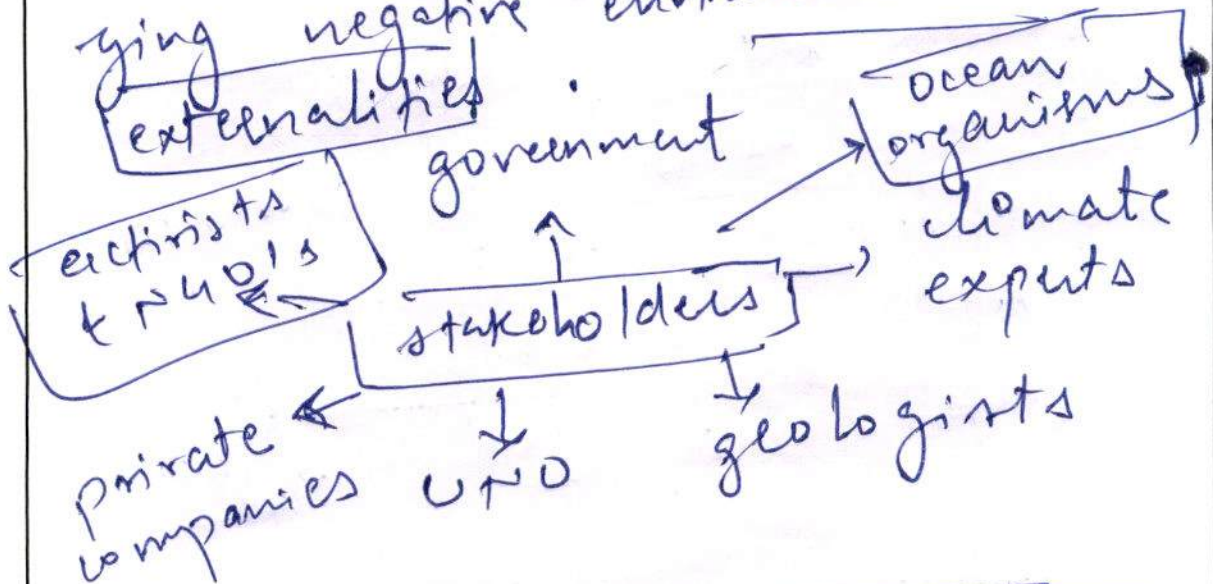 ying negative
externalities.
government
ocean
organisms
activists
& NGO's
climate
experts
stakeholders
private
companies
UNO
geologists